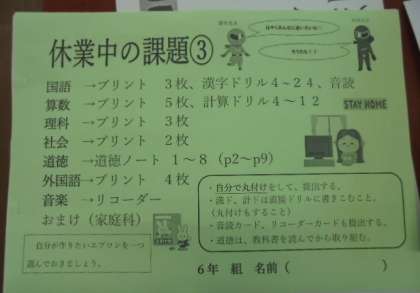 休業中の課題③
はやくみんなに会いたいな！
そうだね！！
国語 →プリント 3枚、漢字ドリル4～24、音読
算数 →プリント 5枚、計算ドリル4～12
STAY HOME
理科 →プリント 3枚
社会 →プリント 2枚
道徳 →道徳ノート 1～8（p2～p9）
外国語→プリント 4枚
音楽 →リコーダー
おまけ（家庭科）
自分が作りたいエプロンを一つ
選んでおきましょう。
・自分で丸付けをして、提出する。
・漢ド、計ドは直接ドリルに書きこむこと。
（丸付けもすること）
・音読カード、リコーダーカードも提出する。
・道徳は、教科書を読んでから取り組む。
6年 組 名前（ ）